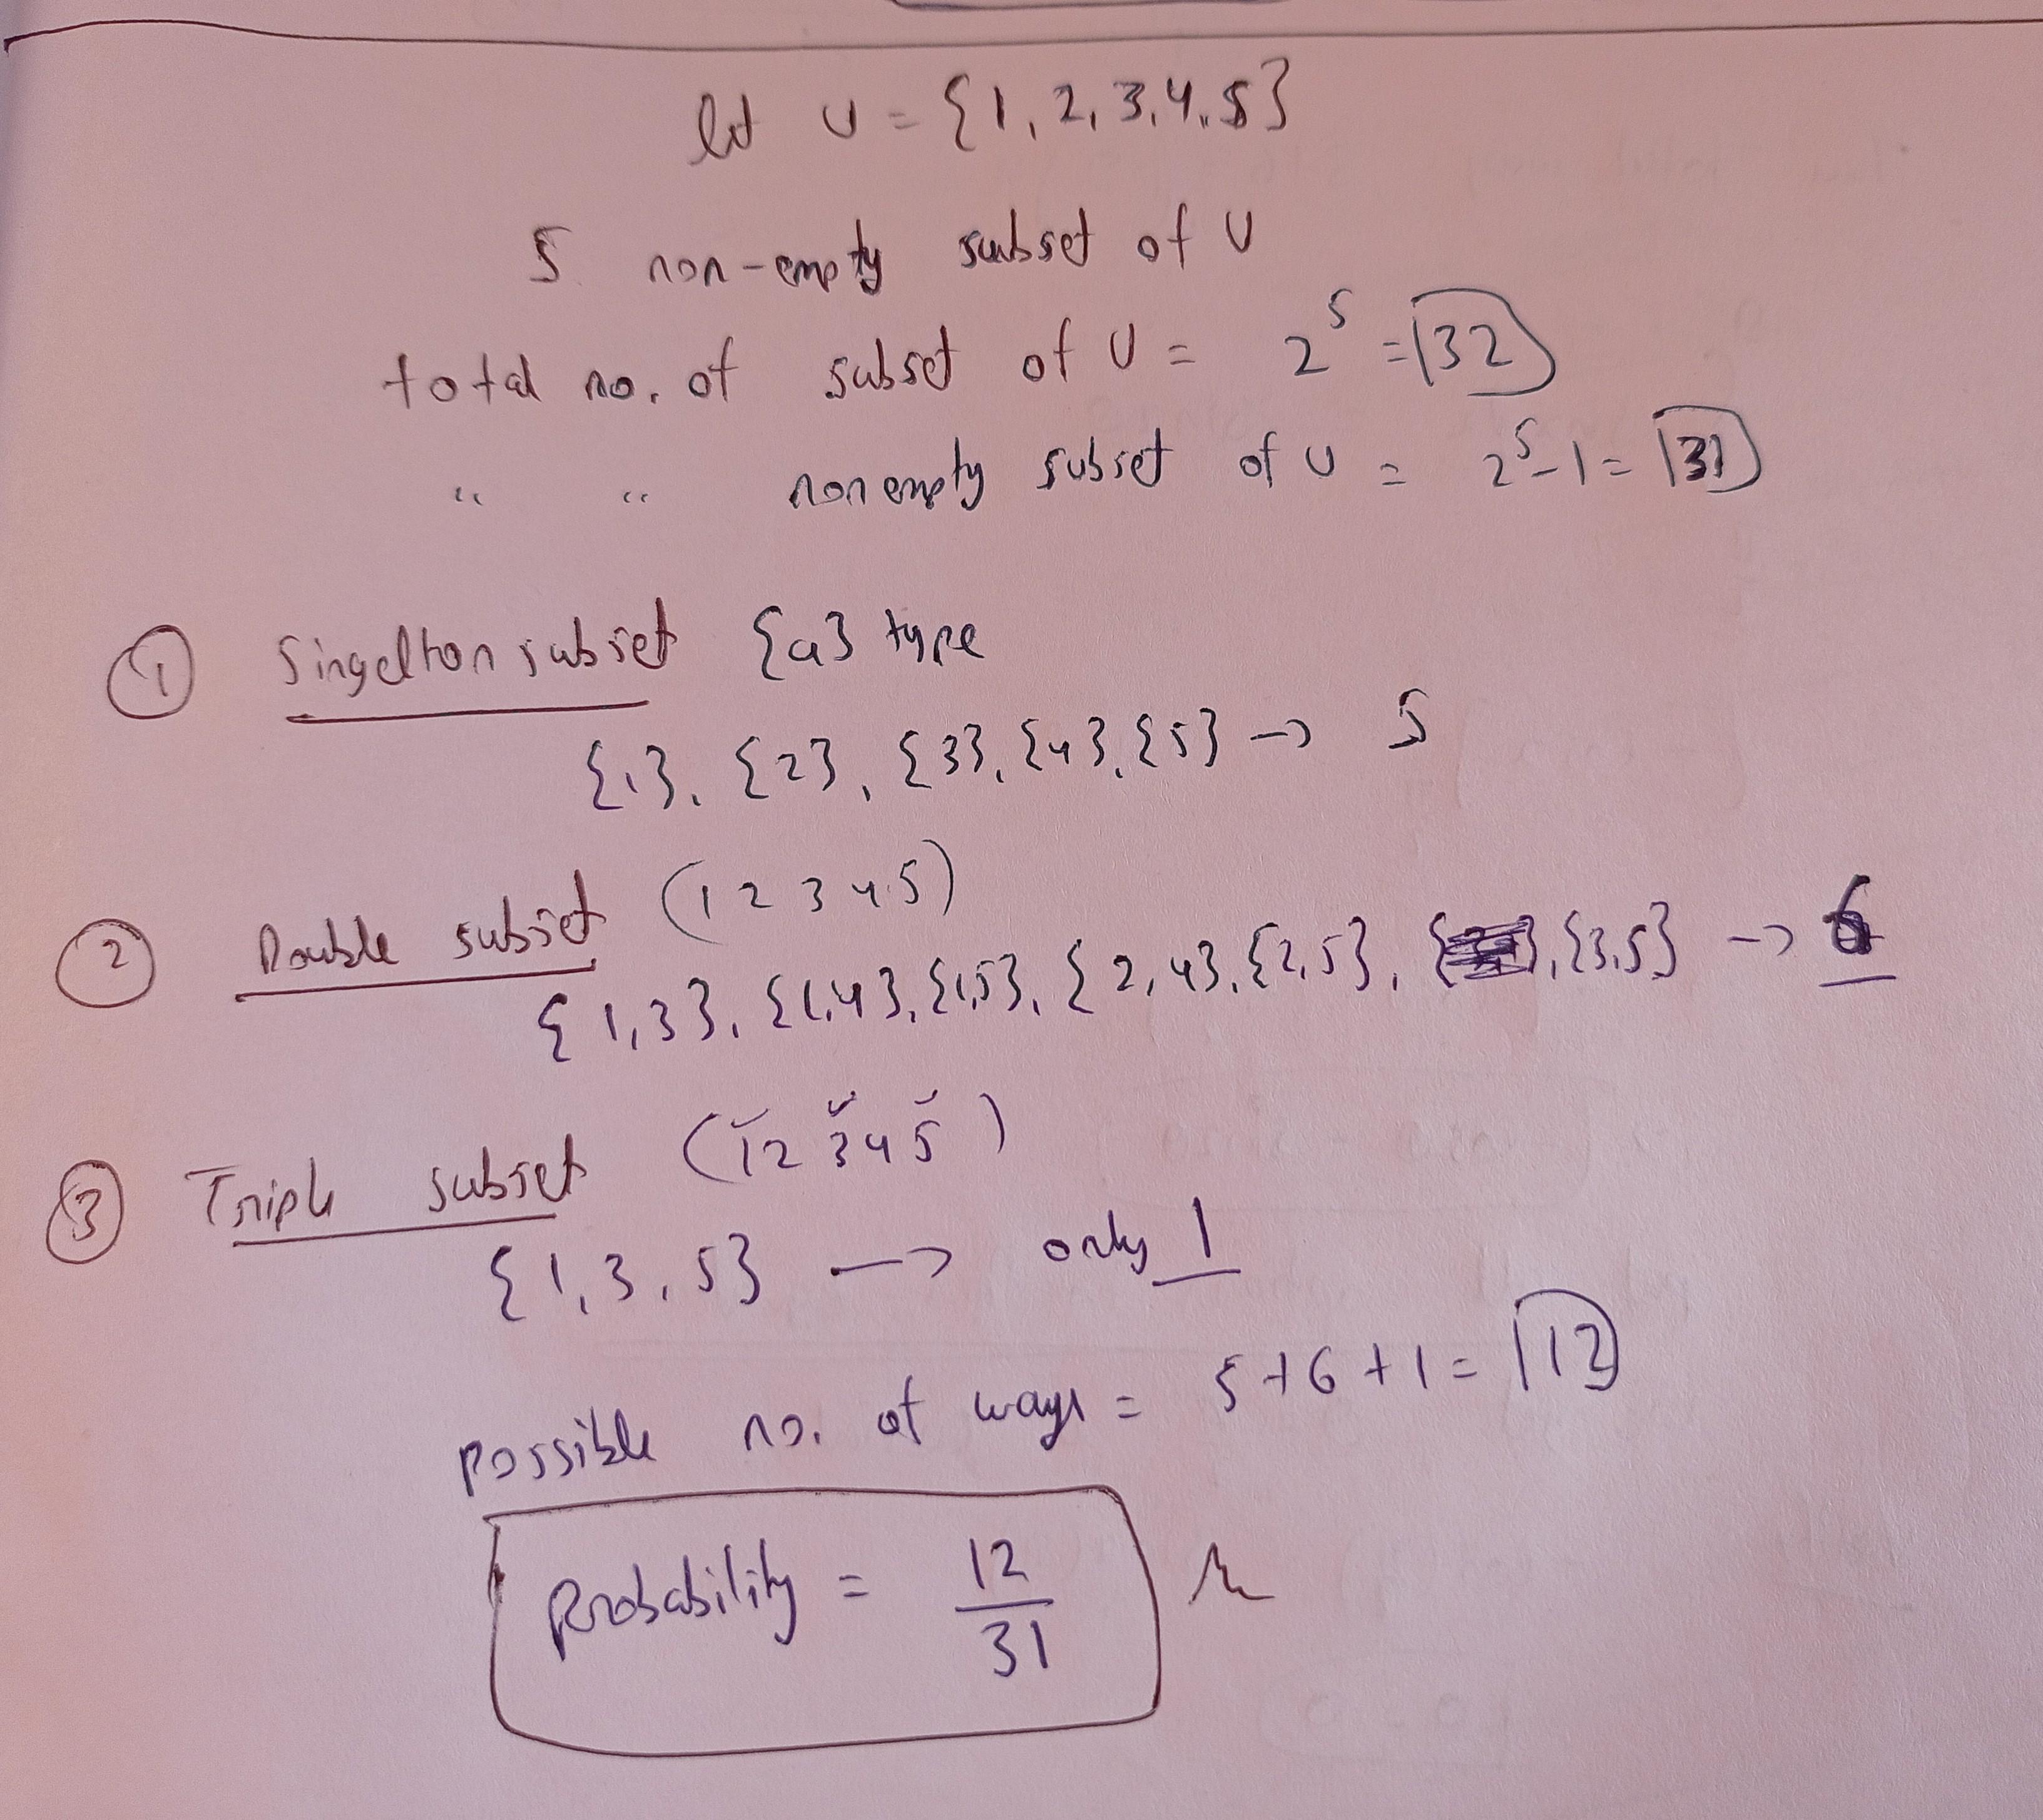 let U = {1, 2, 3, 4, 5}
S non-empty subset of U
total no. of subset of U = 2^5 = 32
" " nonempty subset of U = 2^5 - 1 = 31
① Singelton subset {a} type
{1}, {2}, {3}, {4}, {5} → 5
② Double subset (1 2 3 4 5)
{1,3}, {1,4}, {1,5}, {2,4}, {2,5}, {3,5} → 6
③ Triple subset (1 2 3 4 5)
{1, 3, 5} → only 1
possible no. of ways = 5+6+1 = 12
Probability = 12/31